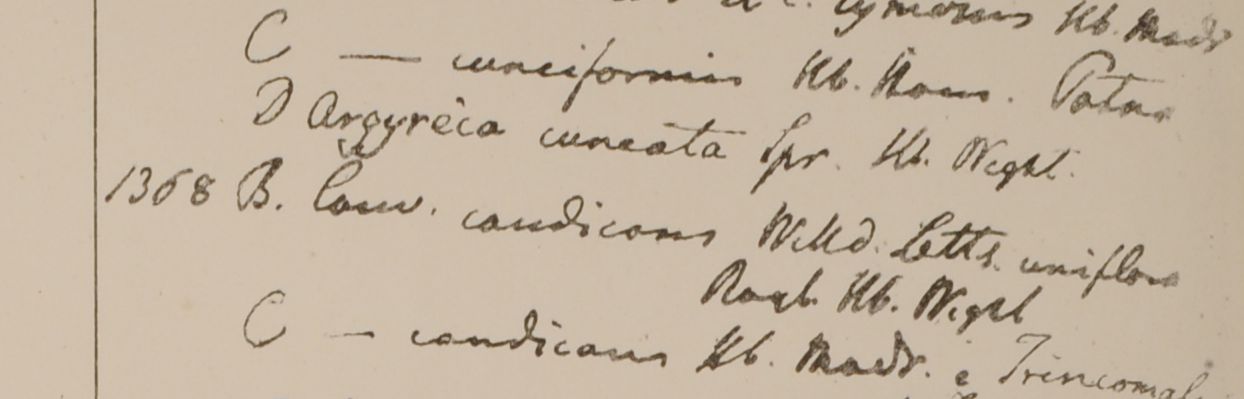 cymosus Hb. Madr
C — cuneiformis Hb. Ham. Patna
D Argyreia cuneata Spr. Hb. Wight.
1368 B. Conv. candicans Willd. Letts. uniflora
Roxb. Hb. Wight
C — candicans Hb. Madr. e Trincomal